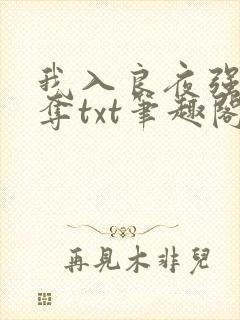 我入良夜强
夺txt笔趣阁
再見木非兒